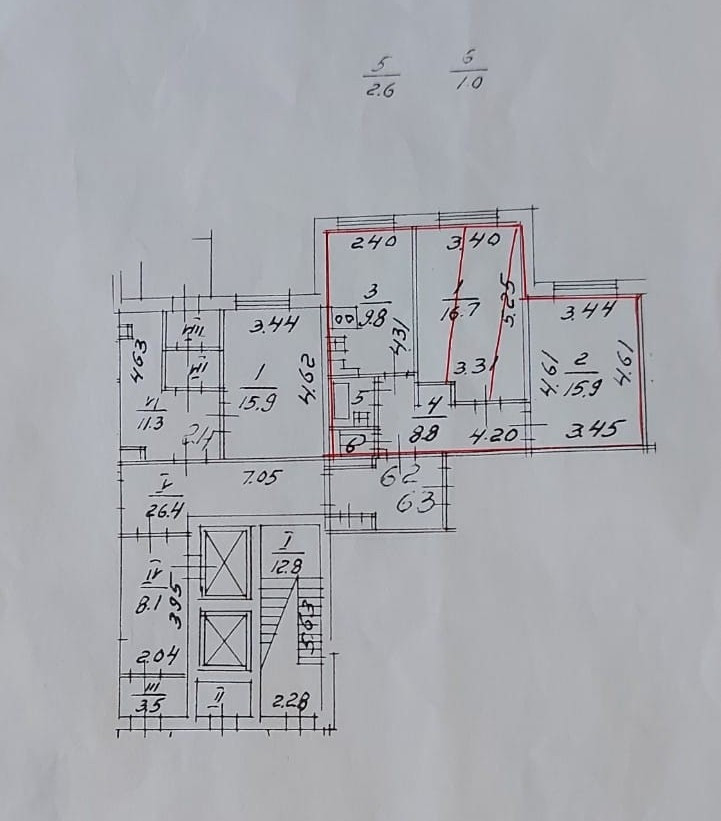 5
2.6
6
1.0
2.40
3.40
3
9.8
1
16.7
5.25
4.31
3.31
3.44
4.61
2
15.9
4.61
3.45
4
8.8
4.20
5
6
3.44
1
15.9
4.62
4.63
VI
11.3
2.14
62
63
V
26.4
7.05
IV
8.1
3.95
2.04
III
3.5
II
I
12.8
5.63
2.28